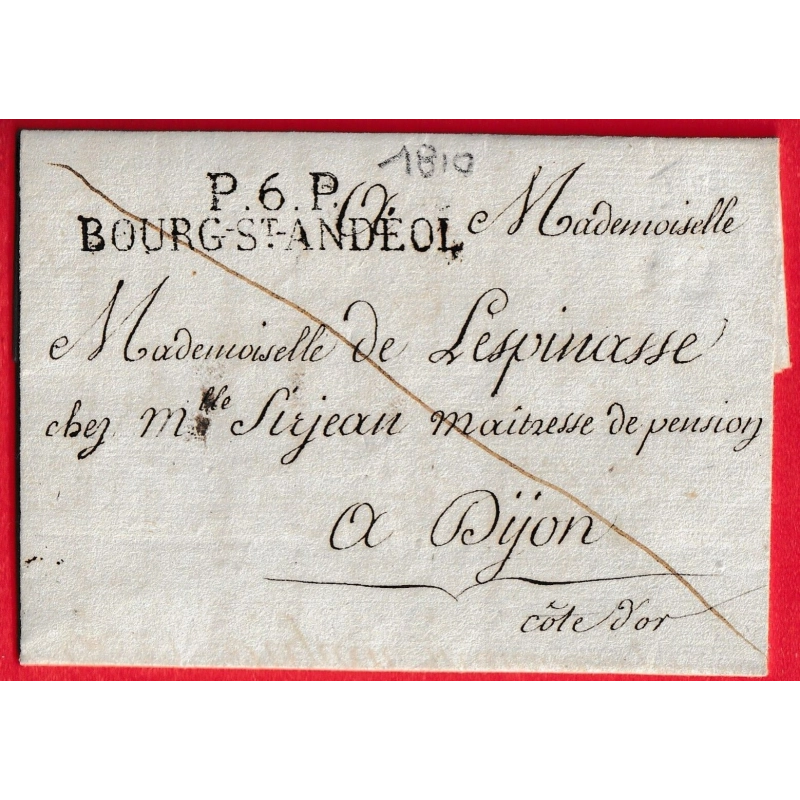 1810
P.6.P.
BOURG-ST-ANDÉOL
A Mademoiselle
Mademoiselle de Lespinasse
chez Mlle Sirjean maîtresse de pension
a Dijon
côte d'or